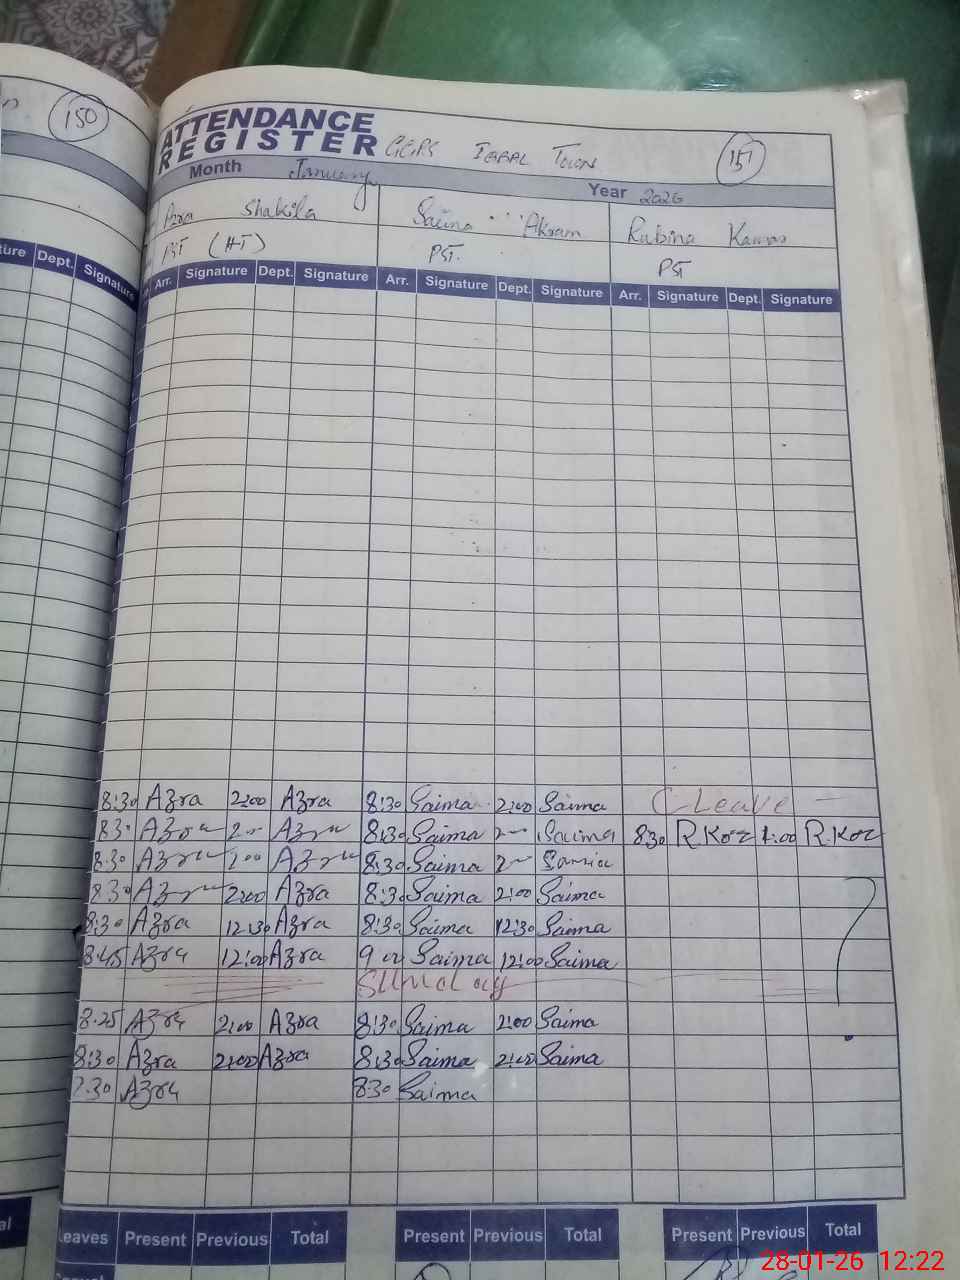 150
ATTENDANCE
REGISTER GGPS IQBAL Town 151
Month January Year 2026
Azra Shakila Saima Akram Rubina
PST (HT) PST. PST
ture Dept. Signature
Arr. Signature Dept. Signature Arr. Signature Dept. Signature Arr. Signature Dept. Signature
8:30 Azra 2:00 Azra 8:30 Saima 2:00 Saima C Leave
830 Azra 2 Azra 8:30 Saima 2 Saima 830 R.Koz 1:00 R.Koz
8:30 Azra 2:00 Azra 8:30 Saima 2
8:30 Azra 2:00 Azra 8:30 Saima 2:00 Saima ?
8:30 Azra 12:30 Azra 8:30 Saima 12:30 Saima
8:45 Azra 12:00 Azra 9 00 Saima 12:00 Saima
Sunday
8:25 Azra 2:00 Azra 8:30 Saima 2:00 Saima
8:30 Azra 2:00 Azra 8:30 Saima 2:00 Saima
Azra 830 Saima
al Leaves Present Previous Total Present Previous Total Present Previous Total
Casual
28-01-26 12:22